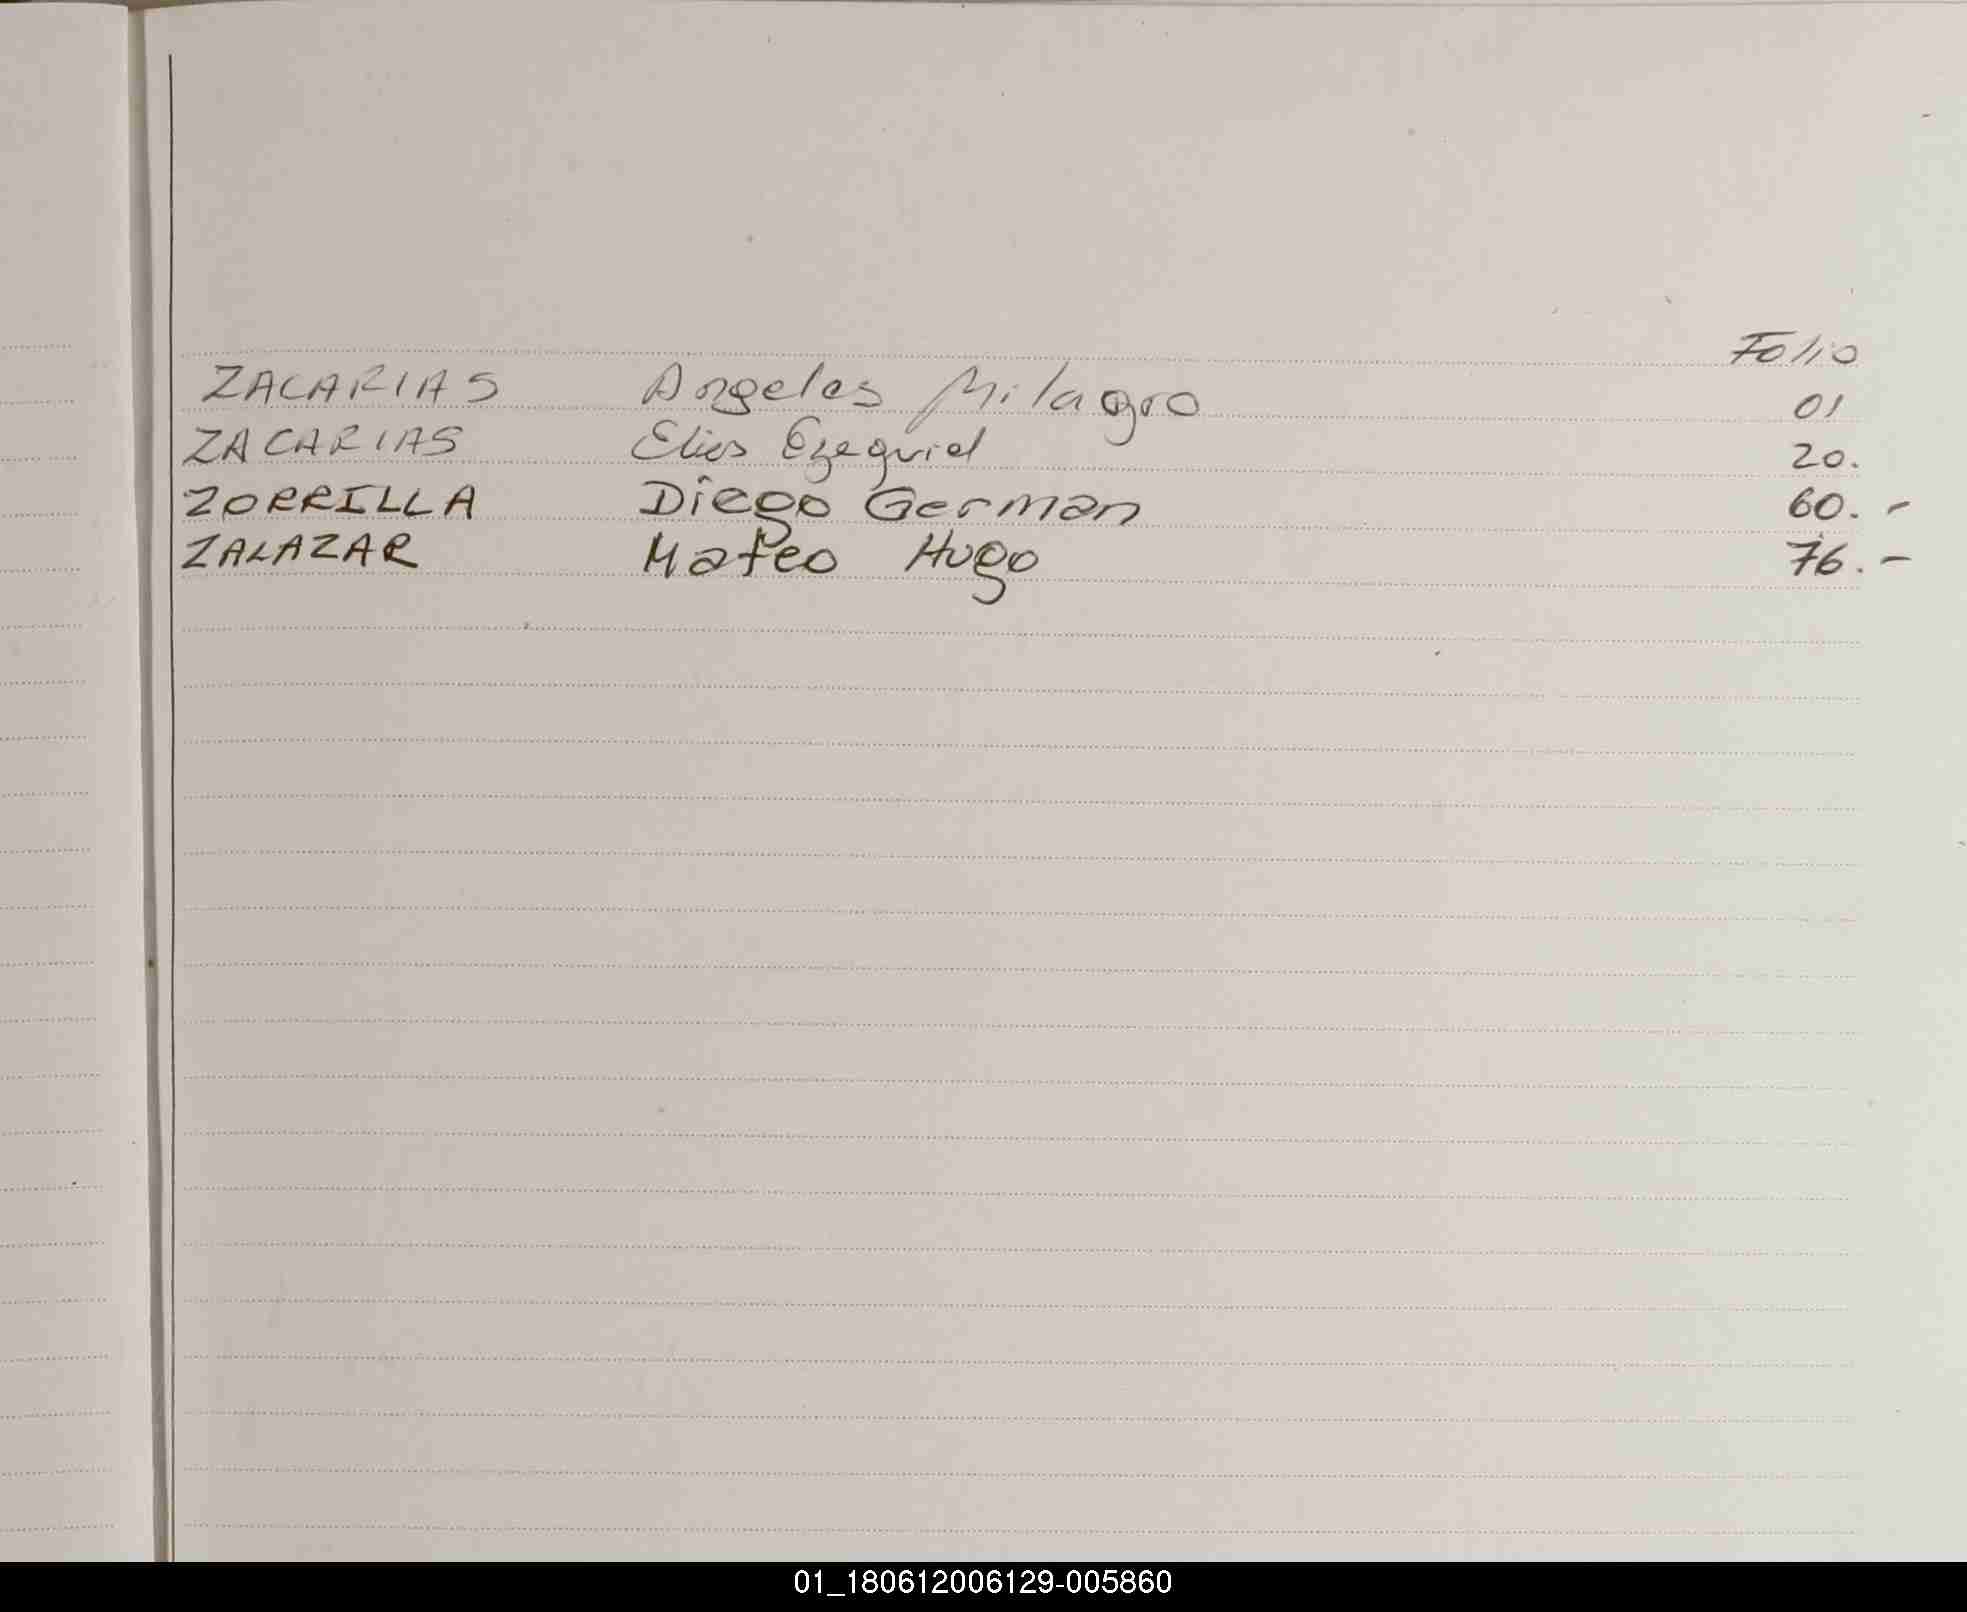 Folio
ZACARIAS Angeles Milagro 01
ZACARIAS Elias Ezequiel 20.
ZORRILLA Diego German 60. -
ZALAZAR Mateo Hugo 76. -
01_180612006129-005860